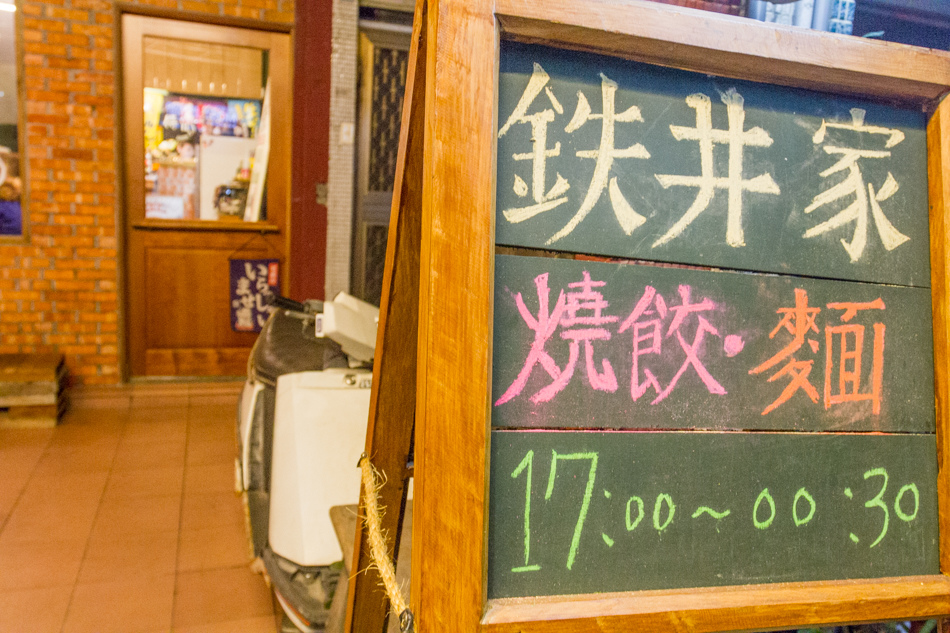 鉄井家
燒餃·麵
17:00~00:30
いらっしい
いませ